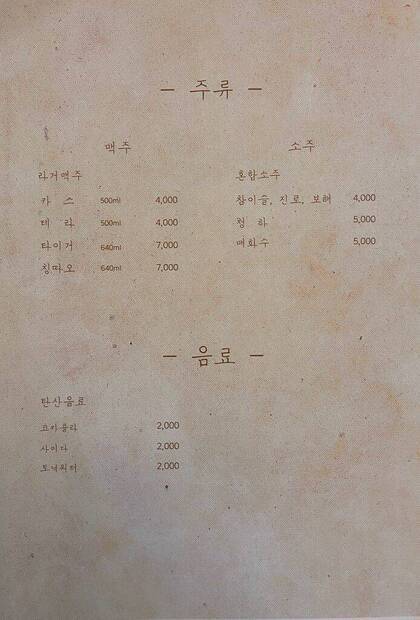 — 주류 —
맥주
라거맥주
카 스 500ml 4,000
테 라 500ml 4,000
타이거 640ml 7,000
칭따오 640ml 7,000
소주
혼합소주
참이슬, 진로, 보해 4,000
청 하 5,000
매화수 5,000
— 음료 —
탄산음료
코카콜라 2,000
사이다 2,000
토닉워터 2,000